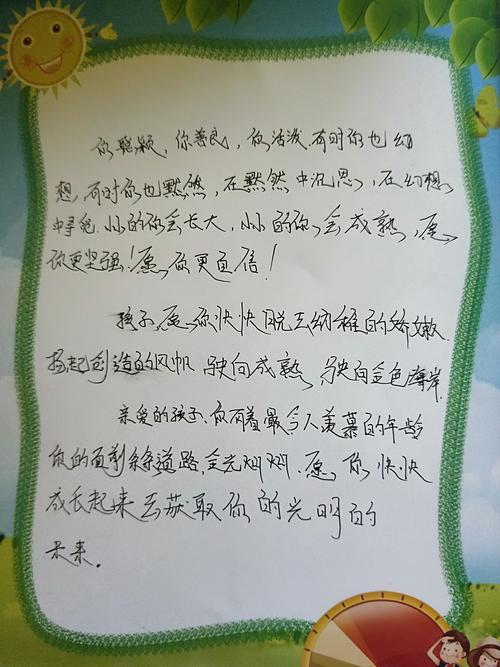 你聪颖，你善良，你活泼。有时你也幻
想，有时你也默然，在默然中沉思，在幻想
中寻觅。小小的你会长大，小小的你，会成熟，愿
你更坚强！愿你更自信！
孩子，愿你快快脱去幼稚的娇嫩，
扬起创造的风帆，驶向成熟，驶向金色海岸。
亲爱的孩子，你有着最令人羡慕的年龄
你的面前条条道路，金光灿灿，愿你快快
成长起来去获取你的光明的
未来。